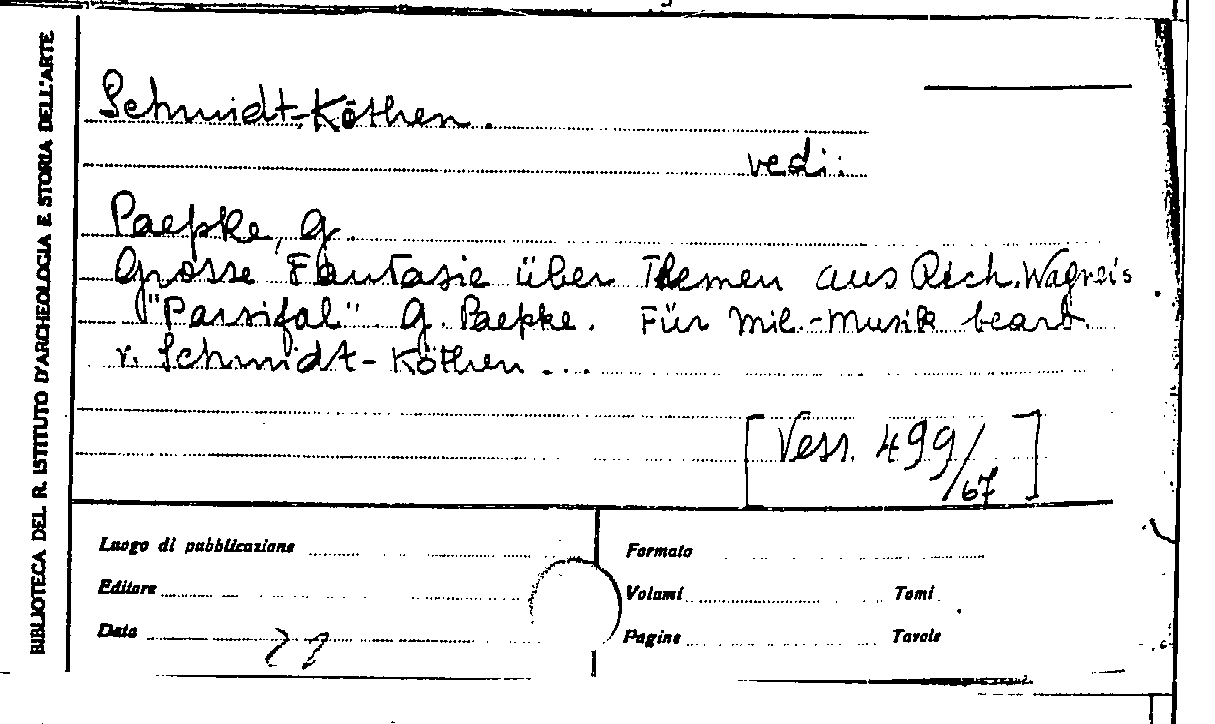 BIBLIOTECA DEL R. ISTITUTO D'ARCHEOLOGIA E STORIA DELL'ARTE
Schmidt-Köthen.
vedi:
Paepke, G.
Grosse Fantasie über Themen aus Rich. Wagner's
"Parsifal" G. Paepke. Für Mil.-Musik bearb.
v. Schmidt-Köthen ...
[Vess. 499/67]
Luogo di pubblicazione
Formato
Editore
Volumi
Tomi
Data
Pagine
Tavole